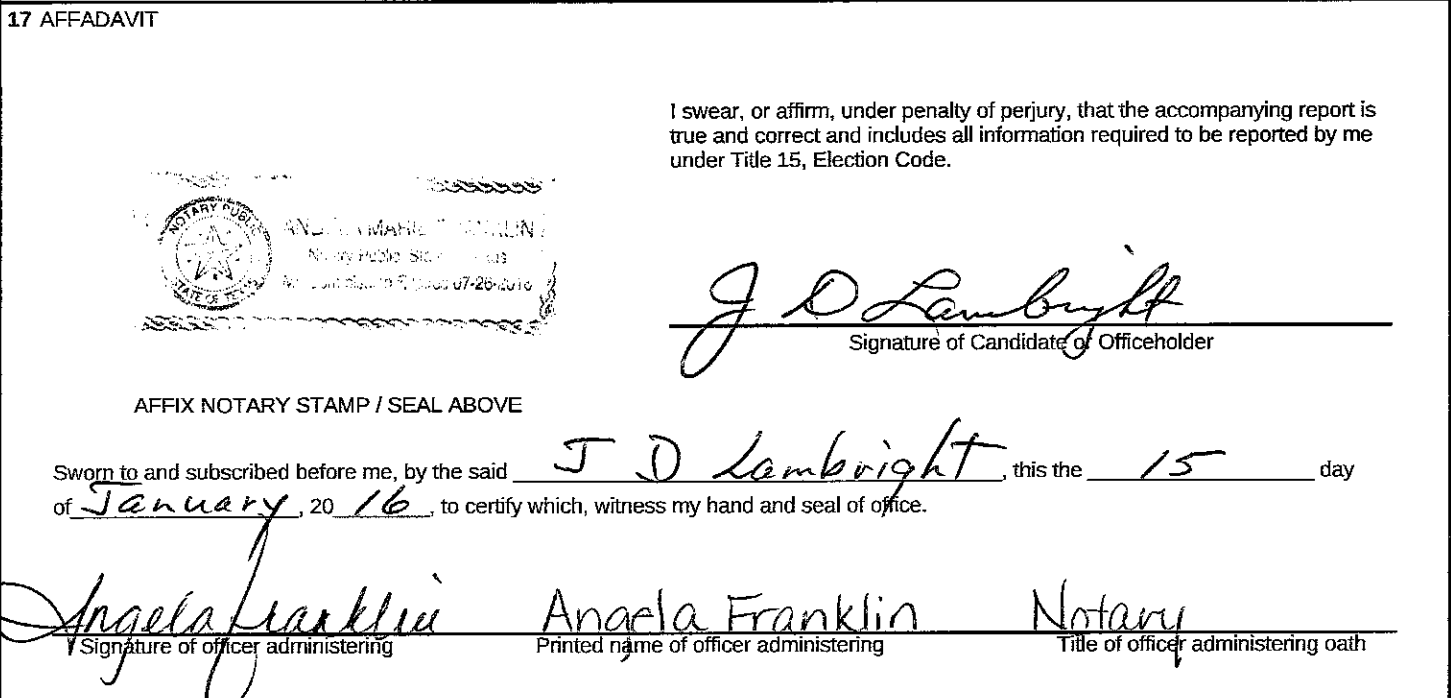 17 AFFADAVIT
I swear, or affirm, under penalty of perjury, that the accompanying report is
true and correct and includes all information required to be reported by me
under Title 15, Election Code.
NOTARY PUBLIC
STATE OF TEXAS
MARIE
Notary Public
07-26-2016
J D Lambright
Signature of Candidate of Officeholder
AFFIX NOTARY STAMP / SEAL ABOVE
Sworn to and subscribed before me, by the said J D Lambright, this the 15 day
of January, 20 16, to certify which, witness my hand and seal of office.
Angela Franklin Angela Franklin Notary
Signature of officer administering Printed name of officer administering Title of officer administering oath